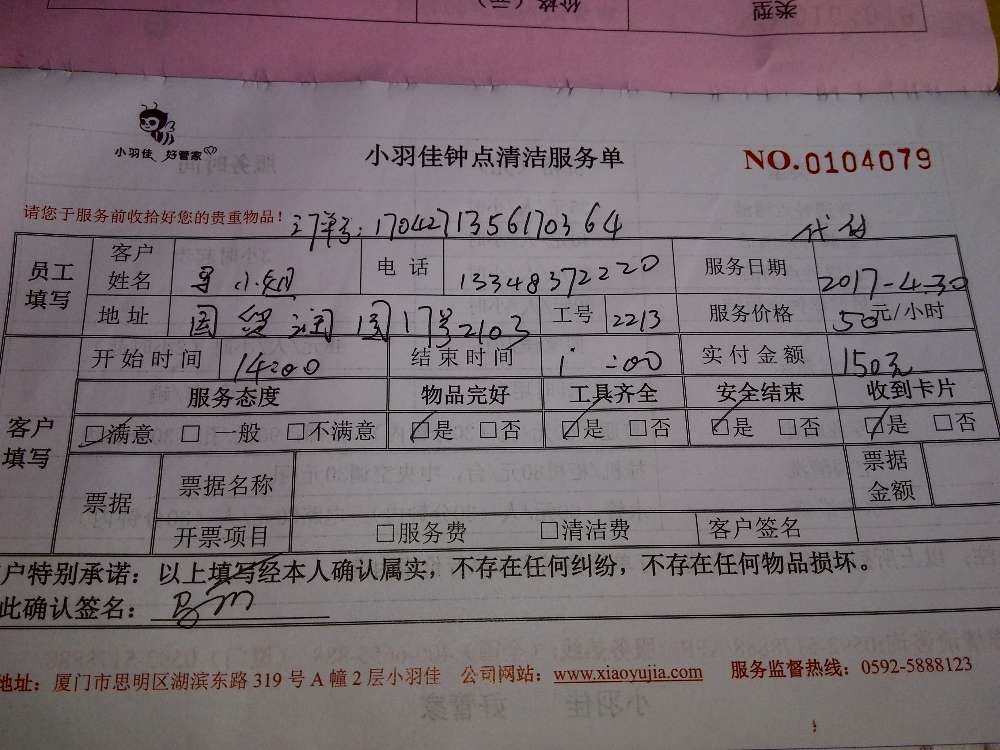 类型
价格（元）
小羽佳 好管家
小羽佳钟点清洁服务单
NO.0104079
请您于服务前收拾好您的贵重物品！
订单号：1704271356170364
代付
员工填写 客户姓名 电话 13348372220 服务日期 2017-4-30
地址 国贸润园17号2103 工号 2213 服务价格 50元/小时
开始时间 14:00 结束时间 :00 实付金额 150元
客户填写 服务态度 物品完好 工具齐全 安全结束 收到卡片
☑满意 □一般 □不满意 ☑是 □否 ☑是 □否 ☑是 □否 ☑是 □否
票据 票据名称 票据金额
开票项目 □服务费 □清洁费 客户签名
户特别承诺：以上填写经本人确认属实，不存在任何纠纷，不存在任何物品损坏。
此确认签名：
地址：厦门市思明区湖滨东路 319 号 A 幢 2 层小羽佳 公司网站：www.xiaoyujia.com 服务监督热线：0592-5888123